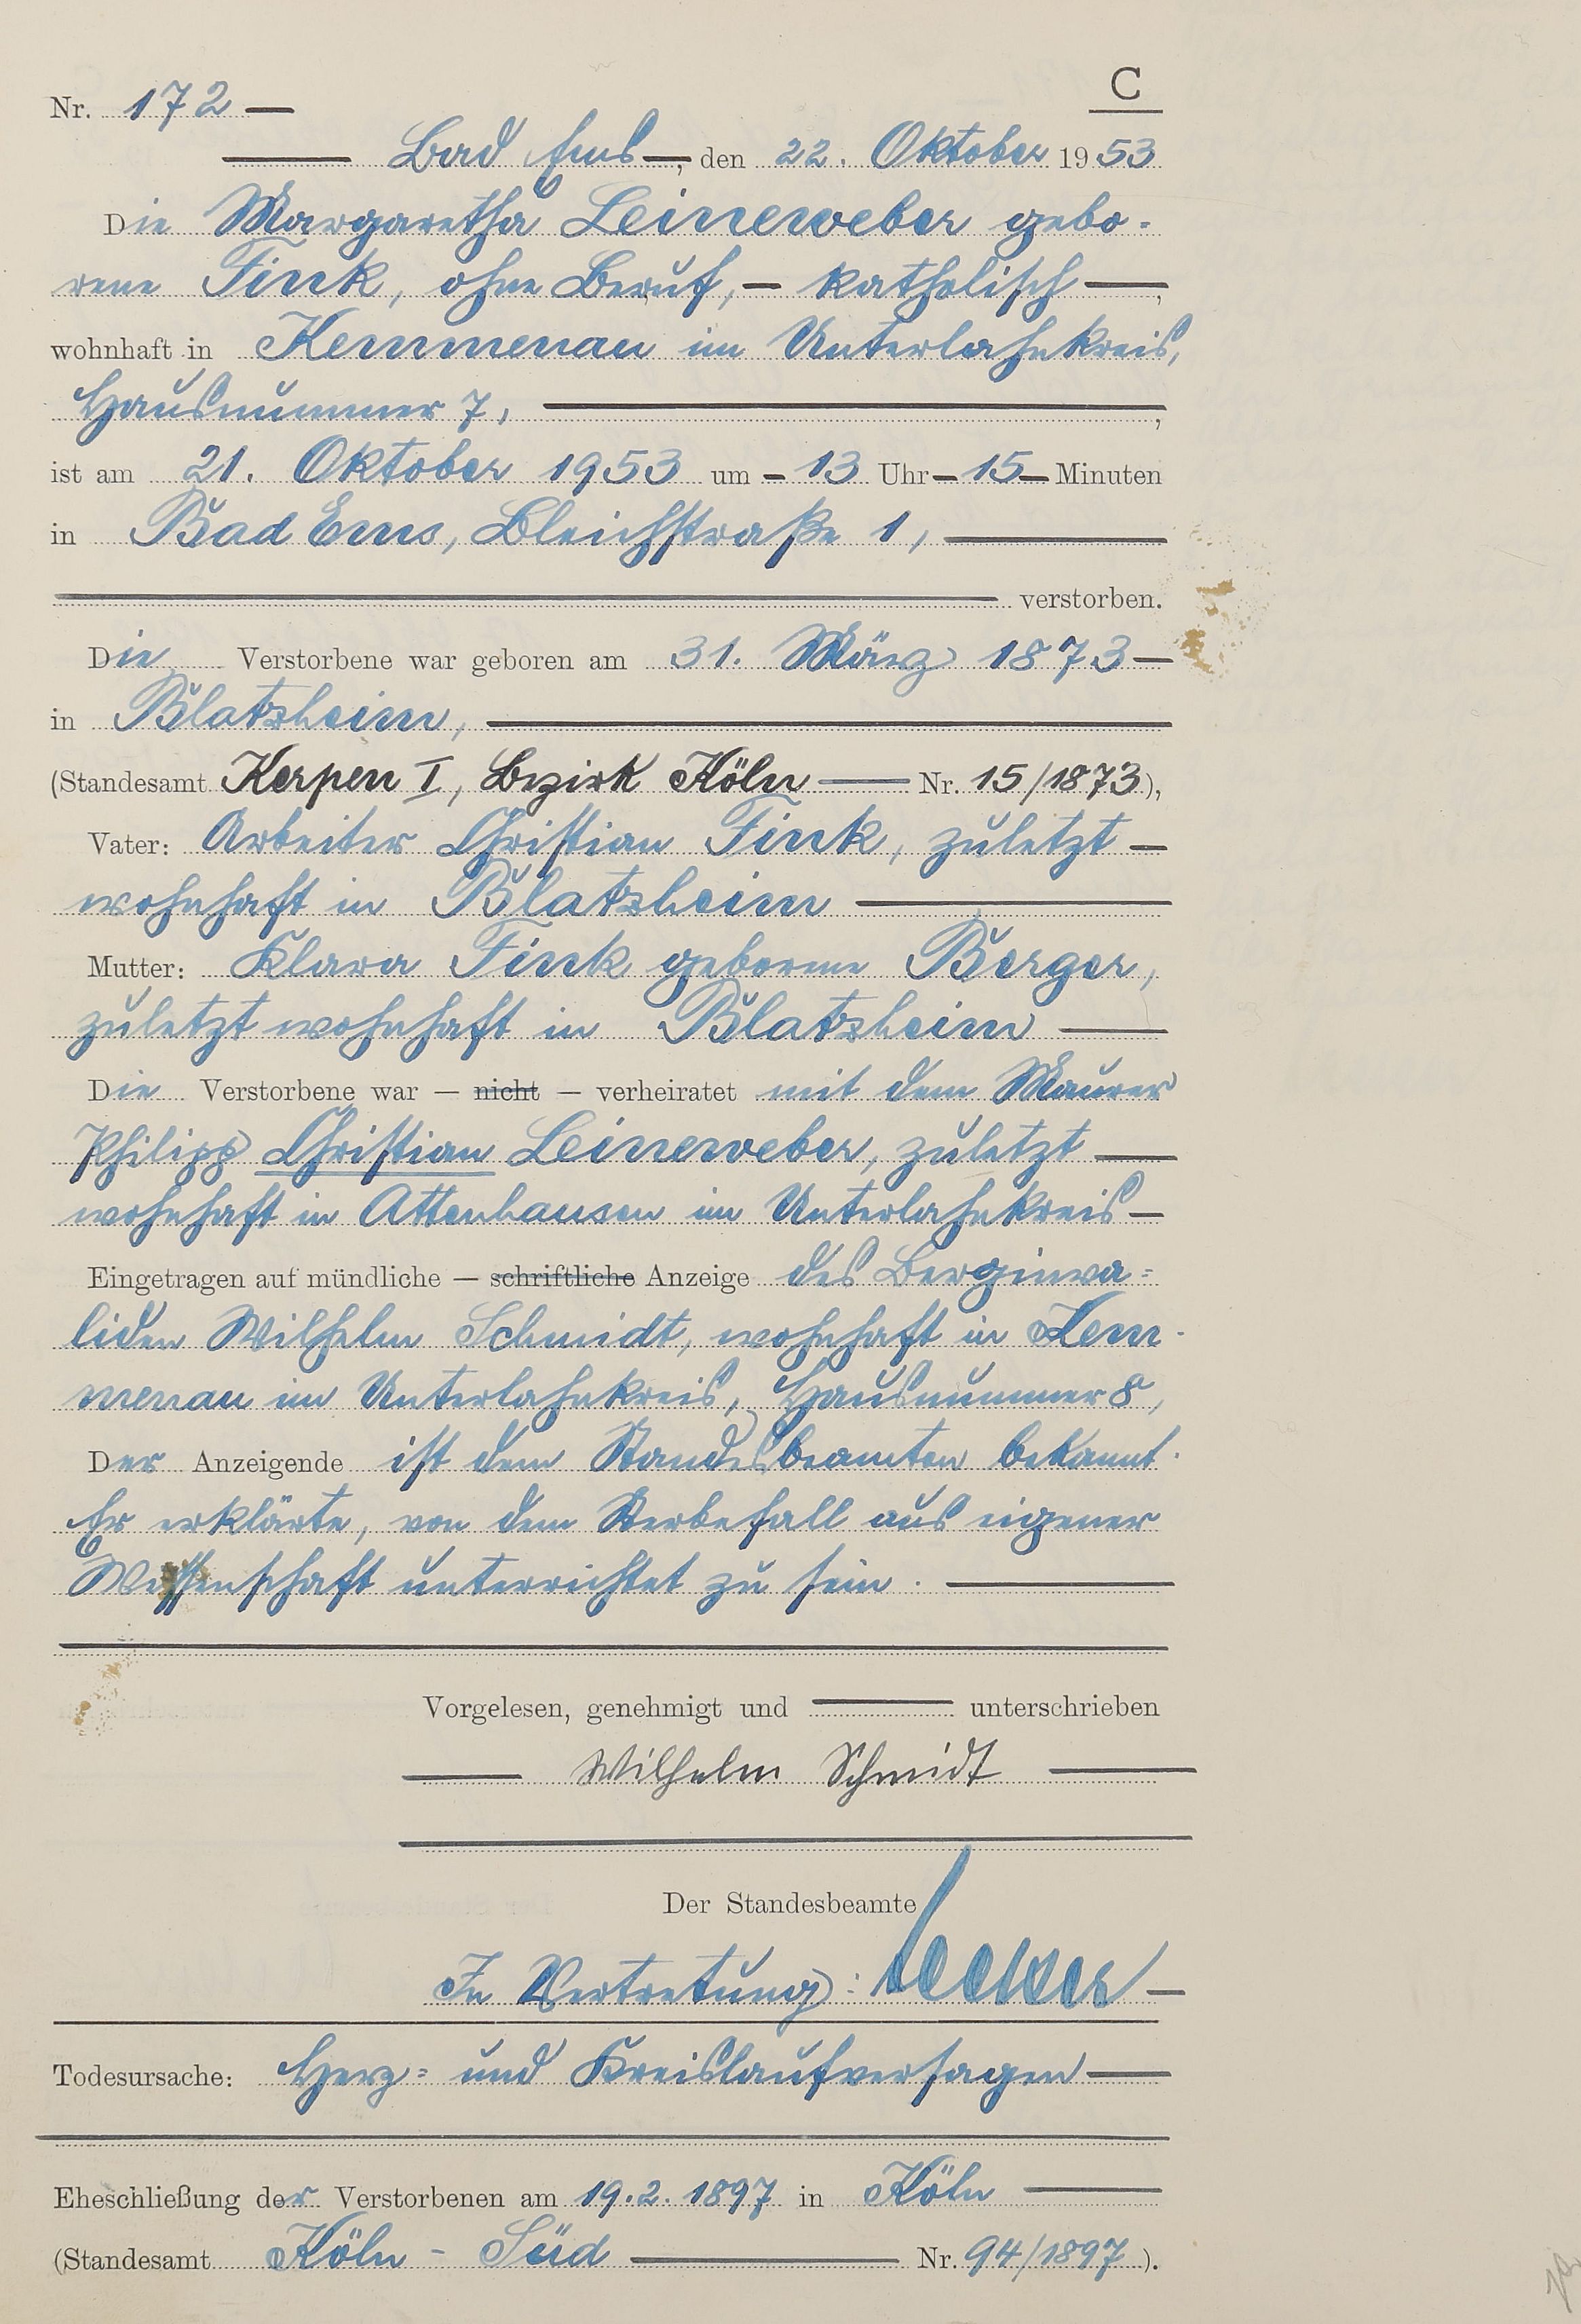 C
Nr. 172 —
— Bad Ems —, den 22. Oktober 1953
Die Margaretha Leineweber gebo-
rene Fink, ohne Beruf, — katholisch —,
wohnhaft in Kemmenau im Unterlahnkreis,
Hausnummer 7, —,
ist am 21. Oktober 1953 um — 13 Uhr — 15 — Minuten
in Bad Ems, Bleichstraße 1, —
— verstorben.
Die Verstorbene war geboren am 31. März 1873 —
in Blatzheim, —
(Standesamt Kerpen I, Bezirk Köln — Nr. 15/1873),
Vater: Arbeiter Christian Fink, zuletzt —
wohnhaft in Blatzheim —
Mutter: Klara Fink geborene Berger,
zuletzt wohnhaft in Blatzheim —
Die Verstorbene war — nicht — verheiratet mit dem Maurer
Philipp Christian Leineweber, zuletzt —
wohnhaft in Attenhausen im Unterlahnkreis —
Eingetragen auf mündliche — schriftliche Anzeige des Berginva-
liden Wilhelm Schmidt, wohnhaft in Kem-
menau im Unterlahnkreis, Hausnummer 8,
Der Anzeigende ist dem Standesbeamten bekannt.
Er erklärte, von dem Sterbefall aus eigener
Wissenschaft unterrichtet zu sein. —
Vorgelesen, genehmigt und — unterschrieben
— Wilhelm Schmidt —
Der Standesbeamte
In Vertretung: —
Todesursache: Herz- und Kreislaufversagen —
Eheschließung der Verstorbenen am 19.2.1897 in Köln —
(Standesamt Köln - Süd — Nr. 94/1897).